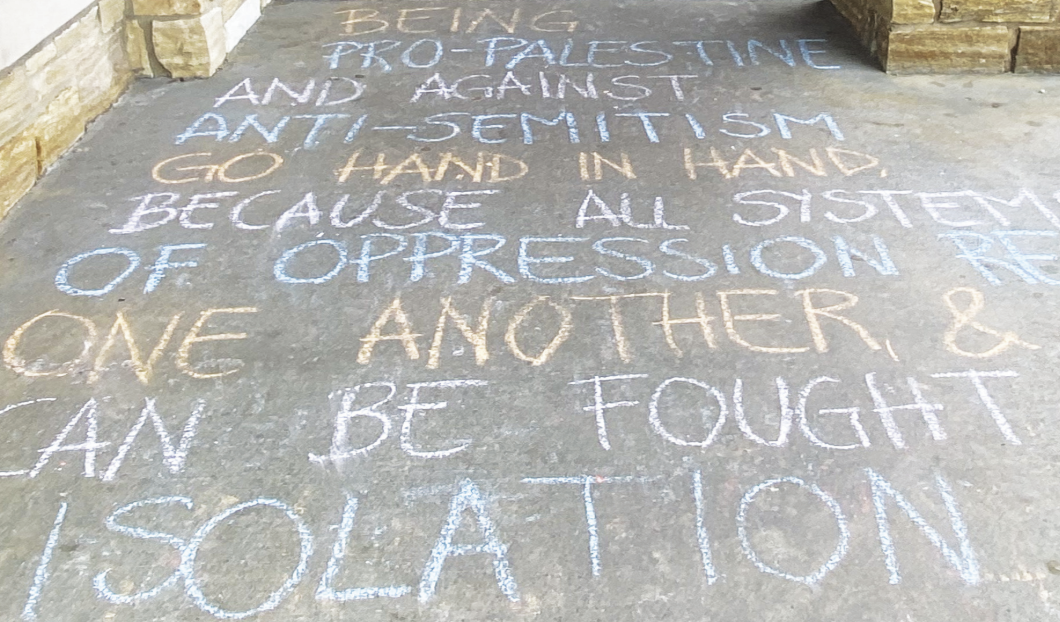 BEING
PRO-PALESTINE
AND AGAINST
ANTI-SEMITISM
GO HAND IN HAND,
BECAUSE ALL SYSTEM
OF OPPRESSION RE
ONE ANOTHER, &
CAN BE FOUGHT
ISOLATION